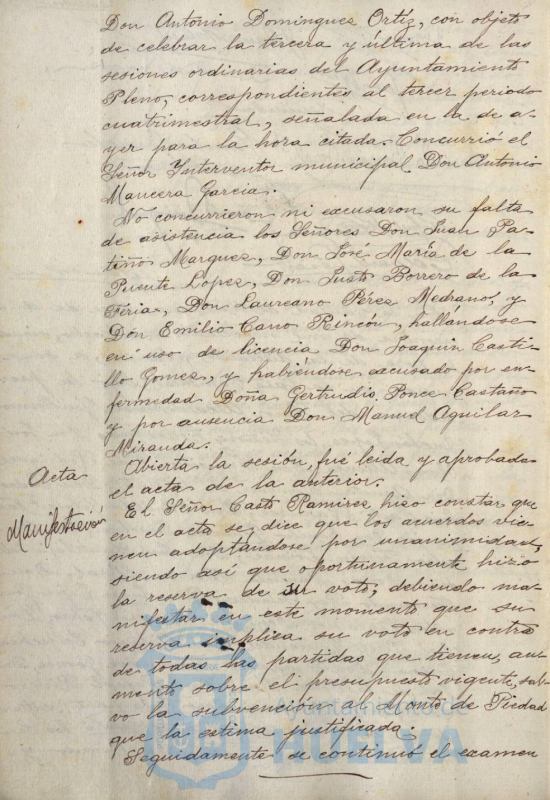 Don Antonio Dominguez Ortíz, con objeto
de celebrar la tercera y última de las
sesiones ordinarias del Ayuntamiento
Pleno, correspondientes al tercer periodo
cuatrimestral, señalada en la de a-
yer para la hora citada. Concurrió el
Señor Interventor municipal Don Antonio
Mancera Garcia.
No concurrieron ni excusaron su falta
de asistencia los Señores Don Juan Pa-
tiño Marquez, Don José María de la
Puente Lopez, Don Justo Borrero de la
Feria, Don Laureano Pérez Medrano, y
Don Emilio Cano Rincón, hallándose
en uso de licencia Don Joaquin Casti-
llo Gomez, y habiéndose excusado por en-
fermedad Doña Gertrudis Ponce Castaño
y por ausencia Don Manuel Aguilar
Miranda.
Acta
Abierta la sesión, fué leida y aprobada
el acta de la anterior.
Manifestación
El Señor Casto Ramirez hizo constar que
en el acta se dice que los acuerdos vie-
nen adoptandose por unanimidad,
siendo así que oportunamente hizo
la reserva de su voto; debiendo ma-
nifestar en este momento que su
reserva implica su voto en contra
de todas las partidas que tienen au-
mento sobre el presupuesto vigente, sal-
vo la subvención al Monte de Piedad
que la estima justificada.
Seguidamente se continuó el examen
Ayuntamiento de
HUELVA